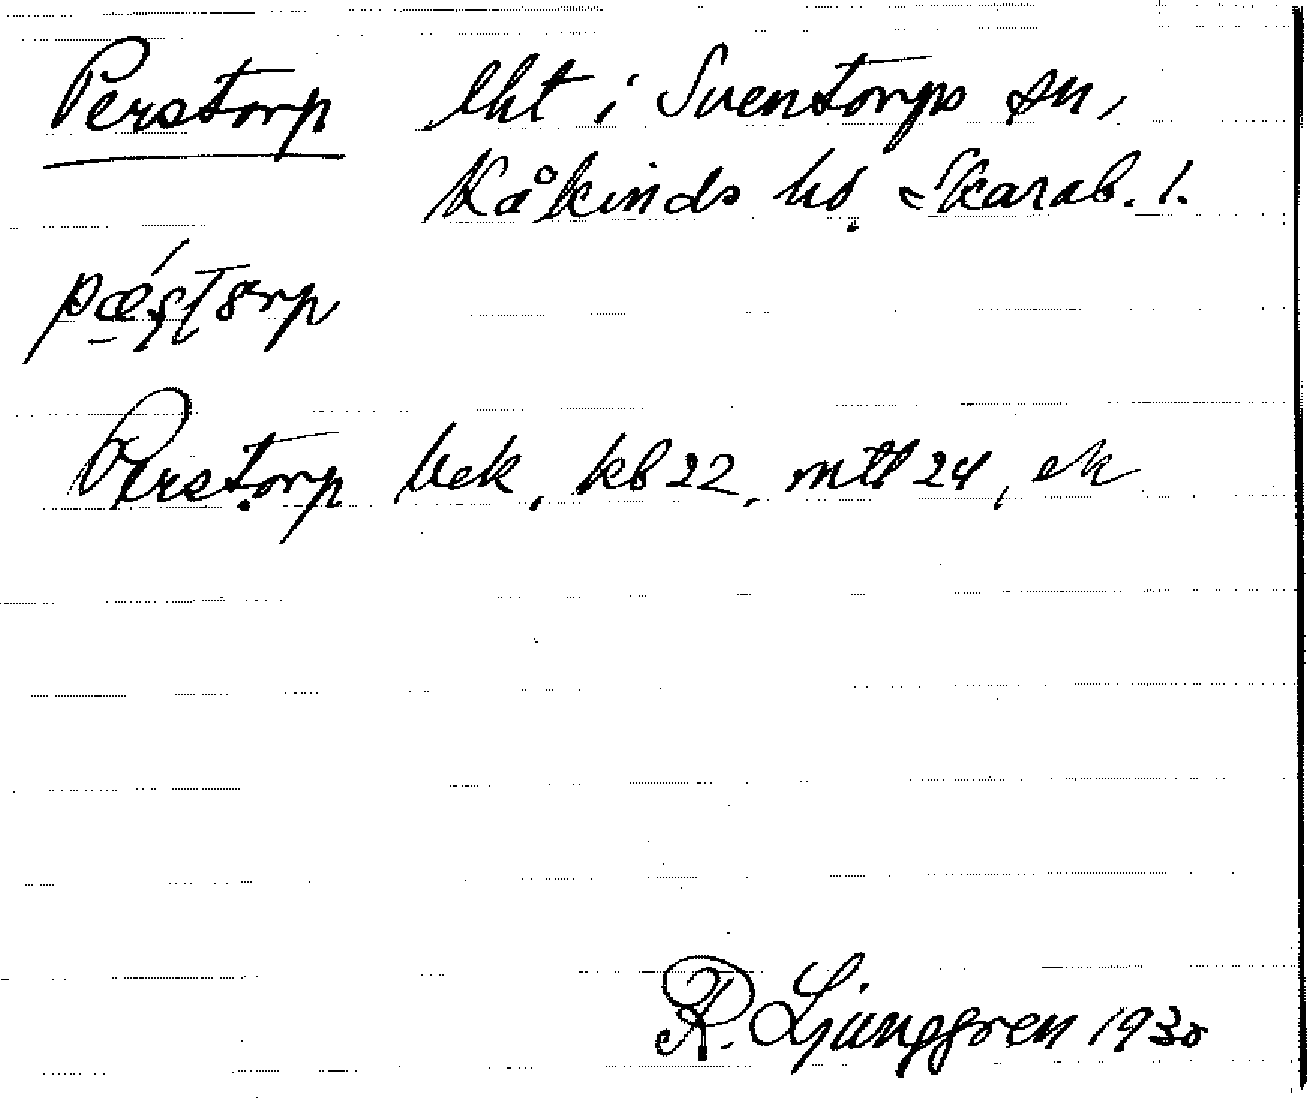 Perstorp lht i Sventorps sn,
Kåkinds hd. Skarab. l.
Perstorp bek, kb 22, mtl 24, ek
R. Ljunggren 1930